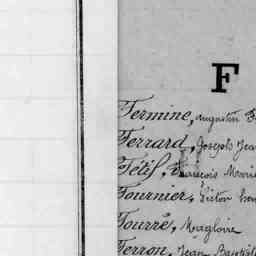 F
Fermine, Augustin
Ferrard, Joseph Jea
Fétis, François Marie
Fournier, Victor hen
Fourré, Magloire
Ferron, Jean Baptist